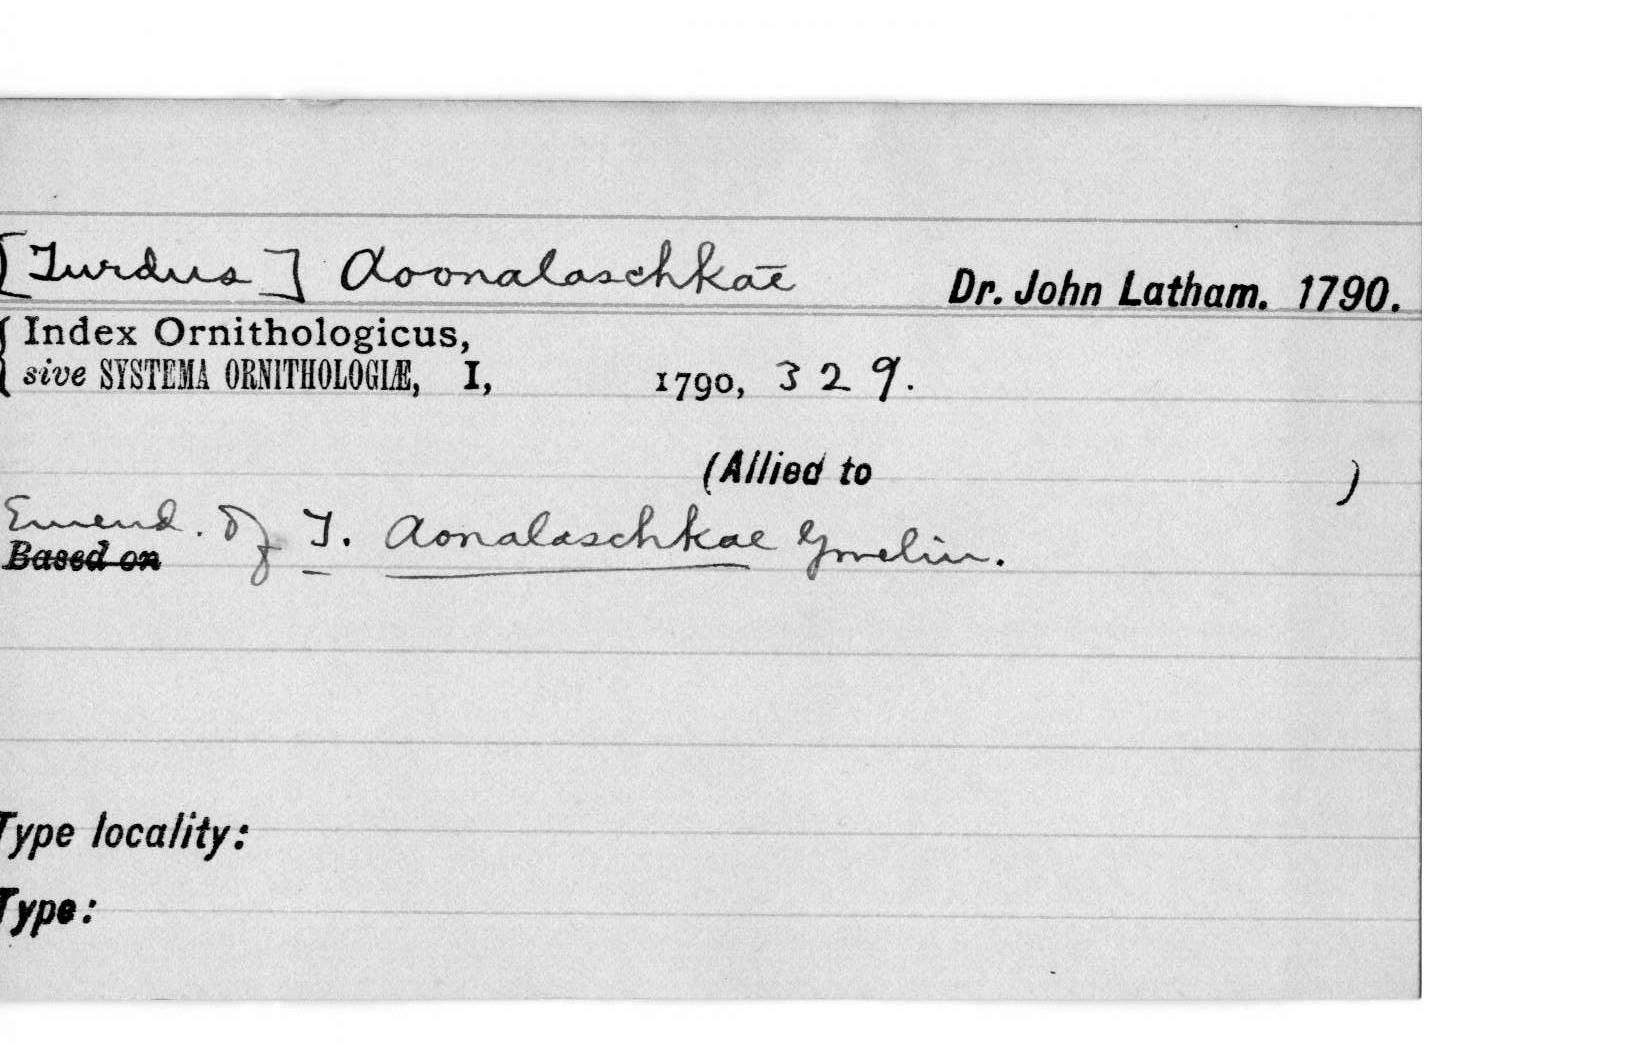 [Turdus] Aoonalaschkae Dr. John Latham. 1790.
{ Index Ornithologicus,
sive SYSTEMA ORNITHOLOGIÆ, I, 1790, 329.
(Allied to )
Emend. of T. Aonalaschkae Gmelin.
Based on
Type locality:
Type: